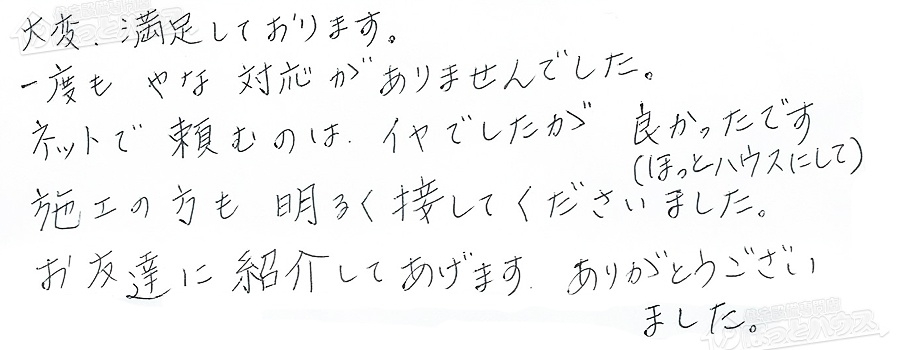 大変、満足しております。
一度も やな 対応がありませんでした。
ネットで 頼むのは、イヤでしたが 良かったです
(ほっとハウスにして)
施工の方も 明るく接してくださいました。
お友達に 紹介してあげます、ありがとうござい
ました。
ほっとハウス